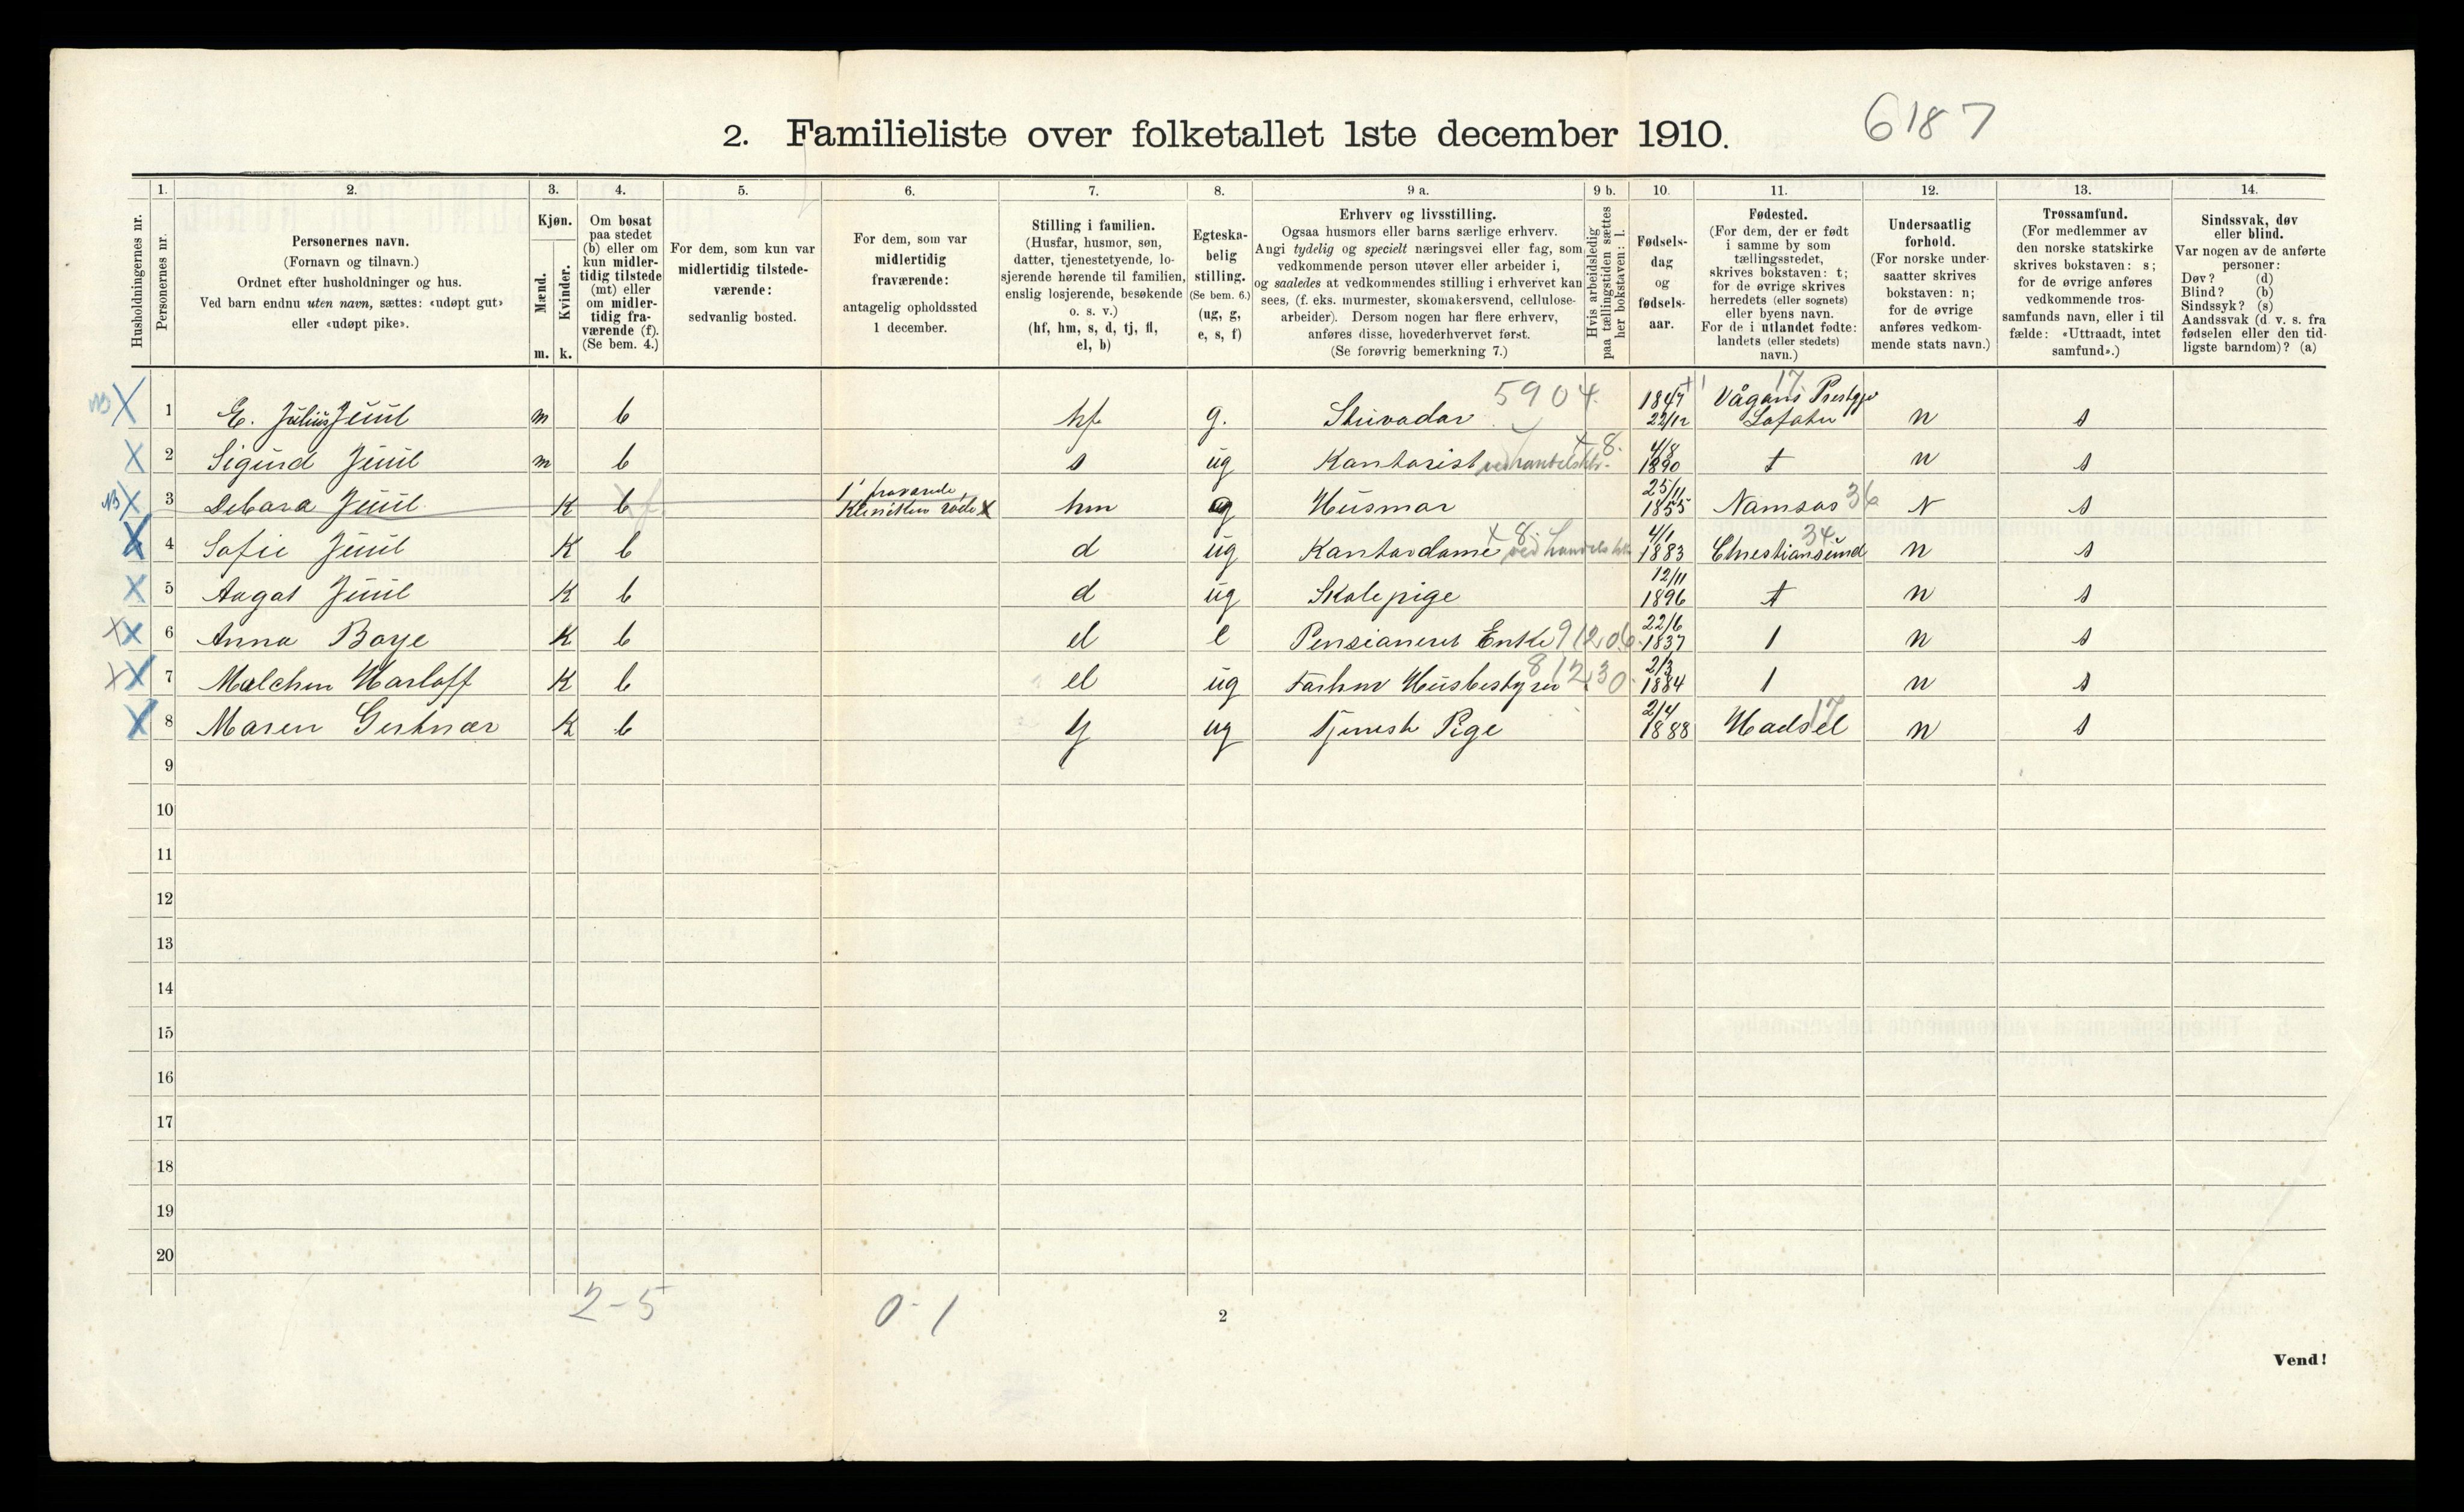 2. Familieliste over folketallet 1ste december 1910.
6187
Husholdningernes nr.
1.
Personernes nr.
2.
Personernes navn.
(Fornavn og tilnavn.)
Ordnet efter husholdninger og hus.
Ved barn endnu uten navn, sættes: «udøpt gut»
eller «udøpt pike».
3.
Kjøn.
Mænd.
Kvinder.
m. k.
4.
Om bosat
paa stedet
(b) eller om
kun midler-
tidig tilstede
(mt) eller
om midler-
tidig fra-
værende (f).
(Se bem. 4.)
5.
For dem, som kun var
midlertidig tilstede-
værende:
sedvanlig bosted.
6.
For dem, som var
midlertidig
fraværende:
antagelig opholdssted
1 december.
7.
Stilling i familien.
(Husfar, husmor, søn,
datter, tjenestetyende, lo-
sjerende hørende til familien,
enslig losjerende, besøkende
o. s. v.)
(hf, hm, s, d, tj, fl,
el, b)
8.
Egteska-
belig
stilling.
(Se bem. 6.)
(ug, g,
e, s, f)
9 a.
Erhverv og livsstilling.
Ogsaa husmors eller barns særlige erhverv.
Angi tydelig og specielt næringsvei eller fag, som
vedkommende person utøver eller arbeider i,
og saaledes at vedkommendes stilling i erhvervet kan
sees, (f. eks. murmester, skomakersvend, cellulose-
arbeider). Dersom nogen har flere erhverv,
anføres disse, hovederhvervet først.
(Se forøvrig bemerkning 7.)
9 b.
Hvis arbeidsledig
paa tællingstiden sættes
her bokstaven: l.
10.
Fødsels-
dag
og
fødsels-
aar.
11.
Fødested.
(For dem, der er født
i samme by som
tællingsstedet,
skrives bokstaven: t;
for de øvrige skrives
herredets (eller sognets)
eller byens navn.
For de i utlandet fødte:
landets (eller stedets)
navn.)
12.
Undersaatlig
forhold.
(For norske under-
saatter skrives
bokstaven: n;
for de øvrige
anføres vedkom-
mende stats navn.)
13.
Trossamfund.
(For medlemmer av
den norske statskirke
skrives bokstaven: s;
for de øvrige anføres
vedkommende tros-
samfunds navn, eller i til
fælde: «Uttraadt, intet
samfund».)
14.
Sindssvak, døv
eller blind.
Var nogen av de anførte
personer:
Døv? (d)
Blind? (b)
Sindssyk? (s)
Aandssvak (d. v. s. fra
fødselen eller den tid-
ligste barndom)? (a)
1 E. Julius Juul m b hf g. Stuvadar 5904. 1847 22/12 Vågans Prestgje 17. n s
2 Sigurd Juul m b s ug Kantorist ved handelsktr. 8. 4/8 1890 t n s
3 Debara Juul K b f. hm g Husmar 25/11 1855 Namsos 36 N s
4 Sofie Juul K b d ug Kantordame 8. ved handels 4/1 1883 Christiansund 34 n s
5 Aagat Juul K b d ug Skolepige 12/11 1896 t n s
6 Anna Boye K b el e Pensioneret Enke 912.06. 22/6 1837 n s
7 Malchen Harloff K b el ug 812.30. 2/3 1884 n s
8 Maren Gertnær K b tj ug Tjeneste Pige 2/4 1888 Hadsel 17 n s
9
10
11
12
13
14
15
16
17
18
19
20
2-5
0-1
2
Vend!